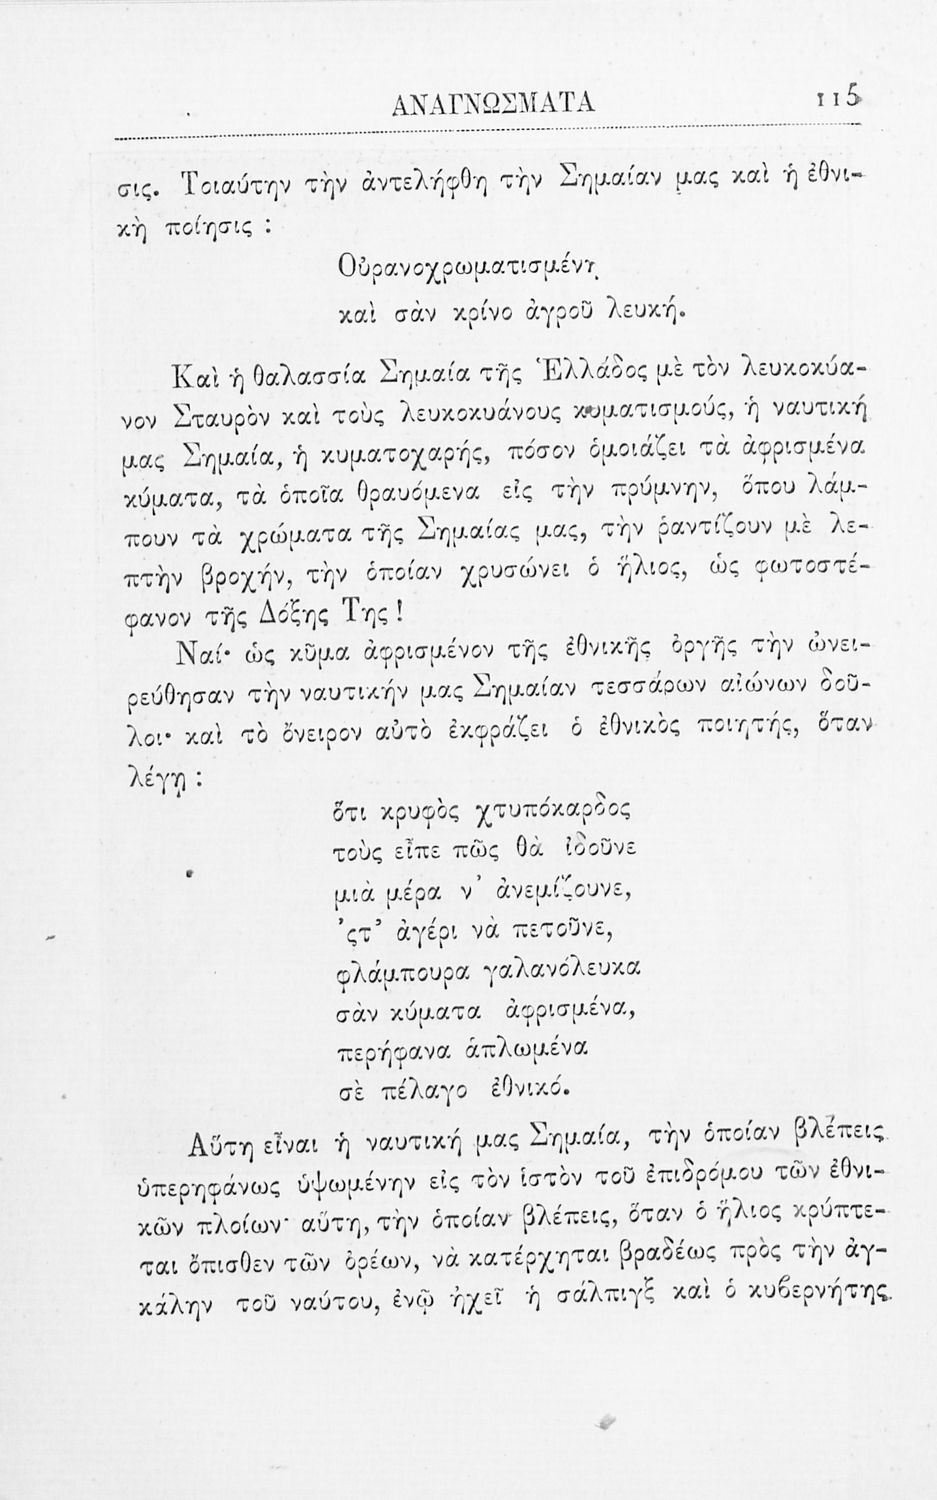 ΑΝΑΓΝΩΣΜΑΤΑ 115
σις. Τοιαύτην τὴν ἀντελήφθη τὴν Σημαίαν μας καὶ ἡ ἐθνι-
κὴ ποίησις :
Οὐρανοχρωματισμένη
καὶ σὰν κρίνο ἀγροῦ λευκή.
Καὶ ἡ θαλασσία Σημαία τῆς Ἑλλάδος μὲ τὸν λευκοκύα-
νον Σταυρὸν καὶ τοὺς λευκοκυάνους κυματισμούς, ἡ ναυτική
μας Σημαία, ἡ κυματοχαρής, πόσον ὁμοιάζει τὰ ἀφρισμένα
κύματα, τὰ ὁποῖα θραυόμενα εἰς τὴν πρύμνην, ὅπου λάμ-
πουν τὰ χρώματα τῆς Σημαίας μας, τὴν ῥαντίζουν μὲ λε-
πτὴν βροχήν, τὴν ὁποίαν χρυσώνει ὁ ἥλιος, ὡς φωτοστέ-
φανον τῆς Δόξης Της !
Ναί· ὡς κῦμα ἀφρισμένον τῆς ἐθνικῆς ὀργῆς τὴν ὠνει-
ρεύθησαν τὴν ναυτικήν μας Σημαίαν τεσσάρων αἰώνων δοῦ-
λοι· καὶ τὸ ὄνειρον αὐτὸ ἐκφράζει ὁ ἐθνικὸς ποιητής, ὅταν
λέγῃ :
ὅτι κρυφὸς χτυπόκαρδος
τοὺς εἶπε πῶς θὰ ἰδοῦνε
μιὰ μέρα ν' ἀνεμίζουνε,
'ςτ' ἀγέρι νὰ πετοῦνε,
φλάμπουρα γαλανόλευκα
σὰν κύματα ἀφρισμένα,
περήφανα ἁπλωμένα
σὲ πέλαγο ἐθνικό.
Αὕτη εἶναι ἡ ναυτική μας Σημαία, τὴν ὁποίαν βλέπεις
ὑπερηφάνως ὑψωμένην εἰς τὸν ἱστὸν τοῦ ἐπιδρόμου τῶν ἐθνι-
κῶν πλοίων· αὕτη, τὴν ὁποίαν βλέπεις, ὅταν ὁ ἥλιος κρύπτε-
ται ὄπισθεν τῶν ὀρέων, νὰ κατέρχηται βραδέως πρὸς τὴν ἀγ-
κάλην τοῦ ναύτου, ἐνῷ ἠχεῖ ἡ σάλπιγξ καὶ ὁ κυβερνήτης